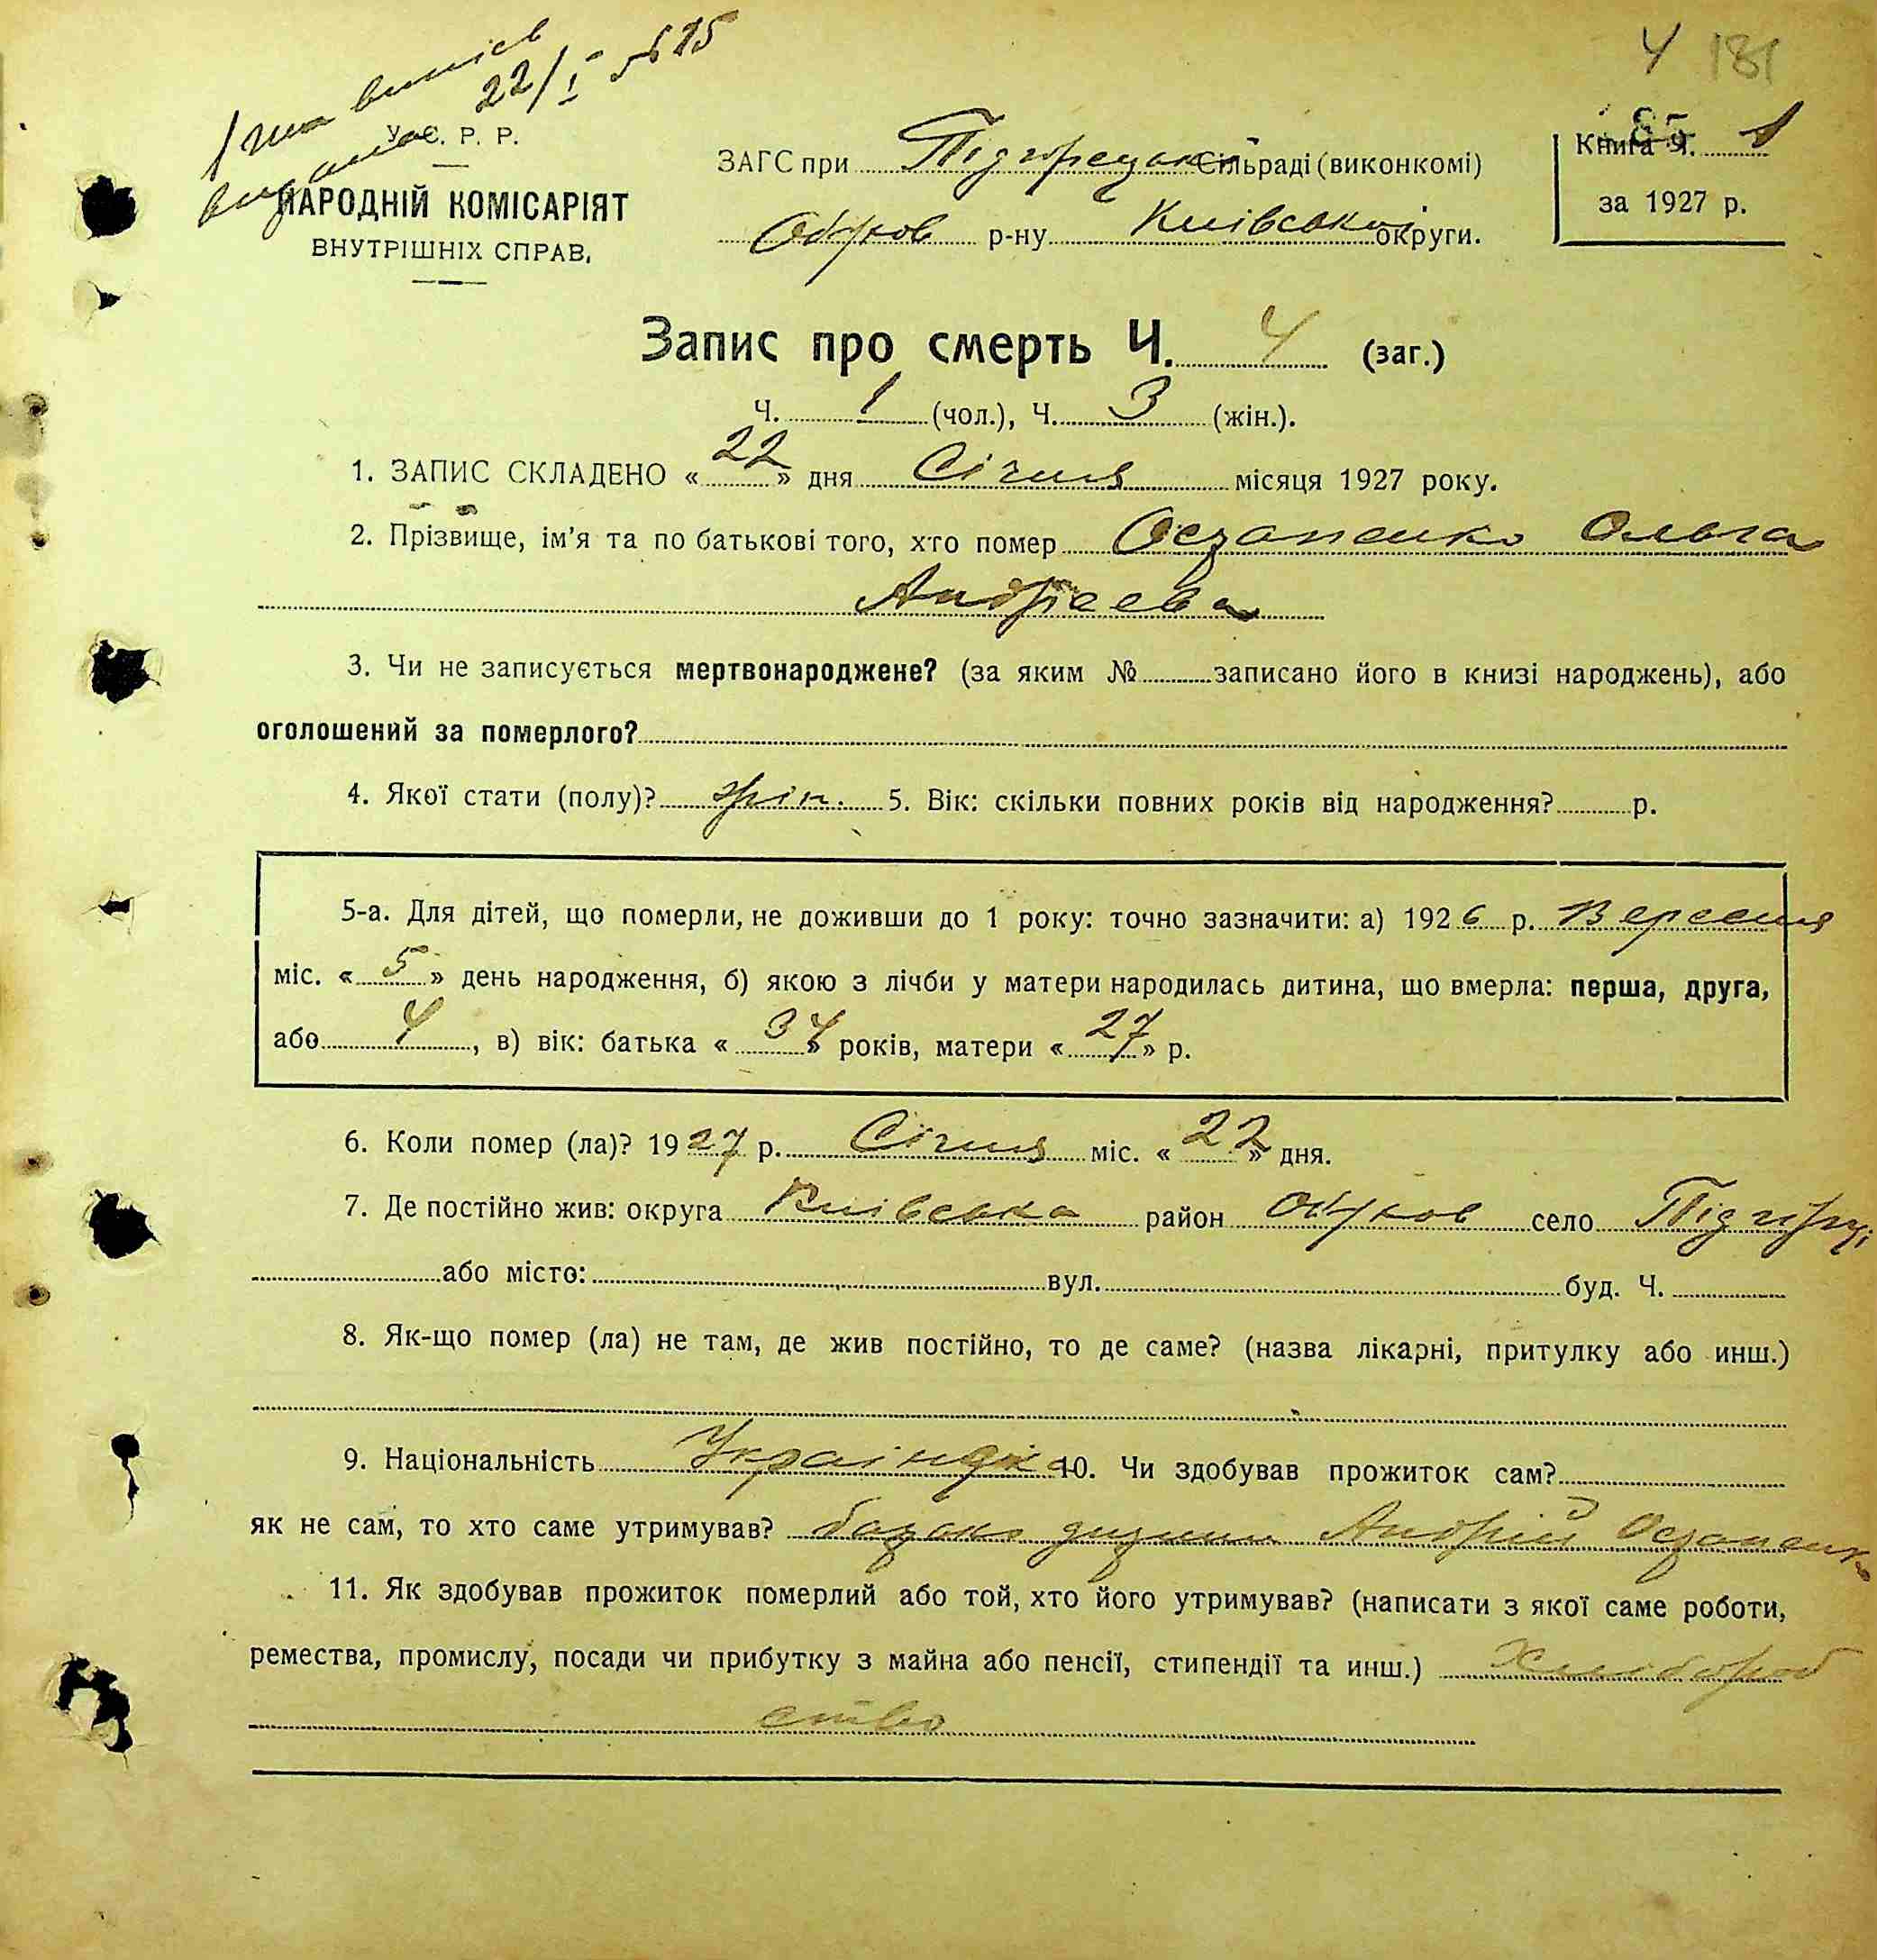 4 181
1 шт випись
видана 22/I № 15
У. С. Р. Р.
НАРОДНІЙ КОМІСАРІЯТ
ВНУТРІШНІХ СПРАВ.
ЗАГС при Підгорецькій Сільраді (виконкомі)
Обухов р-ну Київської округи.
Книга Ч. 1
за 1927 р.
Запис про смерть Ч. 4 (заг.)
Ч. 1 (чол.), Ч. 3 (жін.).
1. ЗАПИС СКЛАДЕНО « 22 » дня Січня місяця 1927 року.
2. Прізвище, ім'я та по батькові того, хто помер Остапенко Ольга
Андрієвна
3. Чи не записується мертвонароджене? (за яким № записано його в книзі народжень), або
оголошений за померлого?
4. Якої стати (полу)? жін. 5. Вік: скільки повних років від народження? р.
5-а. Для дітей, що померли, не доживши до 1 року: точно зазначити: а) 1926 р. Вересня
міс. « 5 » день народження, б) якою з лічби у матери народилась дитина, що вмерла: перша, друга,
або 4, в) вік: батька « 34 » років, матери « 27 » р.
6. Коли помер (ла)? 1927 р. Січня міс. « 22 » дня.
7. Де постійно жив: округа Київська район Обухов село Підгірці
або місто: вул. буд. Ч.
8. Як-що помер (ла) не там, де жив постійно, то де саме? (назва лікарні, притулку або инш.)
9. Національність Українка 10. Чи здобував прожиток сам?
як не сам, то хто саме утримував? батько дитини Андрій Остапенко
11. Як здобував прожиток померлий або той, хто його утримував? (написати з якої саме роботи,
ремества, промислу, посади чи прибутку з майна або пенсії, стипендії та инш.) Хлібороб
ство